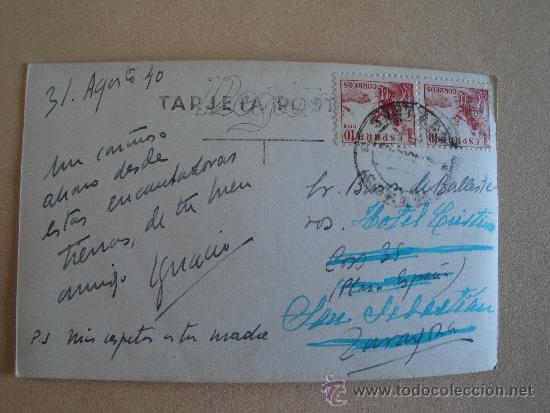 31. Agosto 40
TARJETA POST
CORREOS
ESPAÑA
10
CORREOS
ESPAÑA
10
Un cariñoso
abrazo desde
estas encantadoras
tierras, de tu buen
amigo Ignacio
P.S Mis respetos a tu madre
Sr. Baron de Balleste
ros. Hotel Cristina
Coso 38
(Plaza España)
San Sebastián
Zaragoza
todocoleccion
www.todocoleccion.net